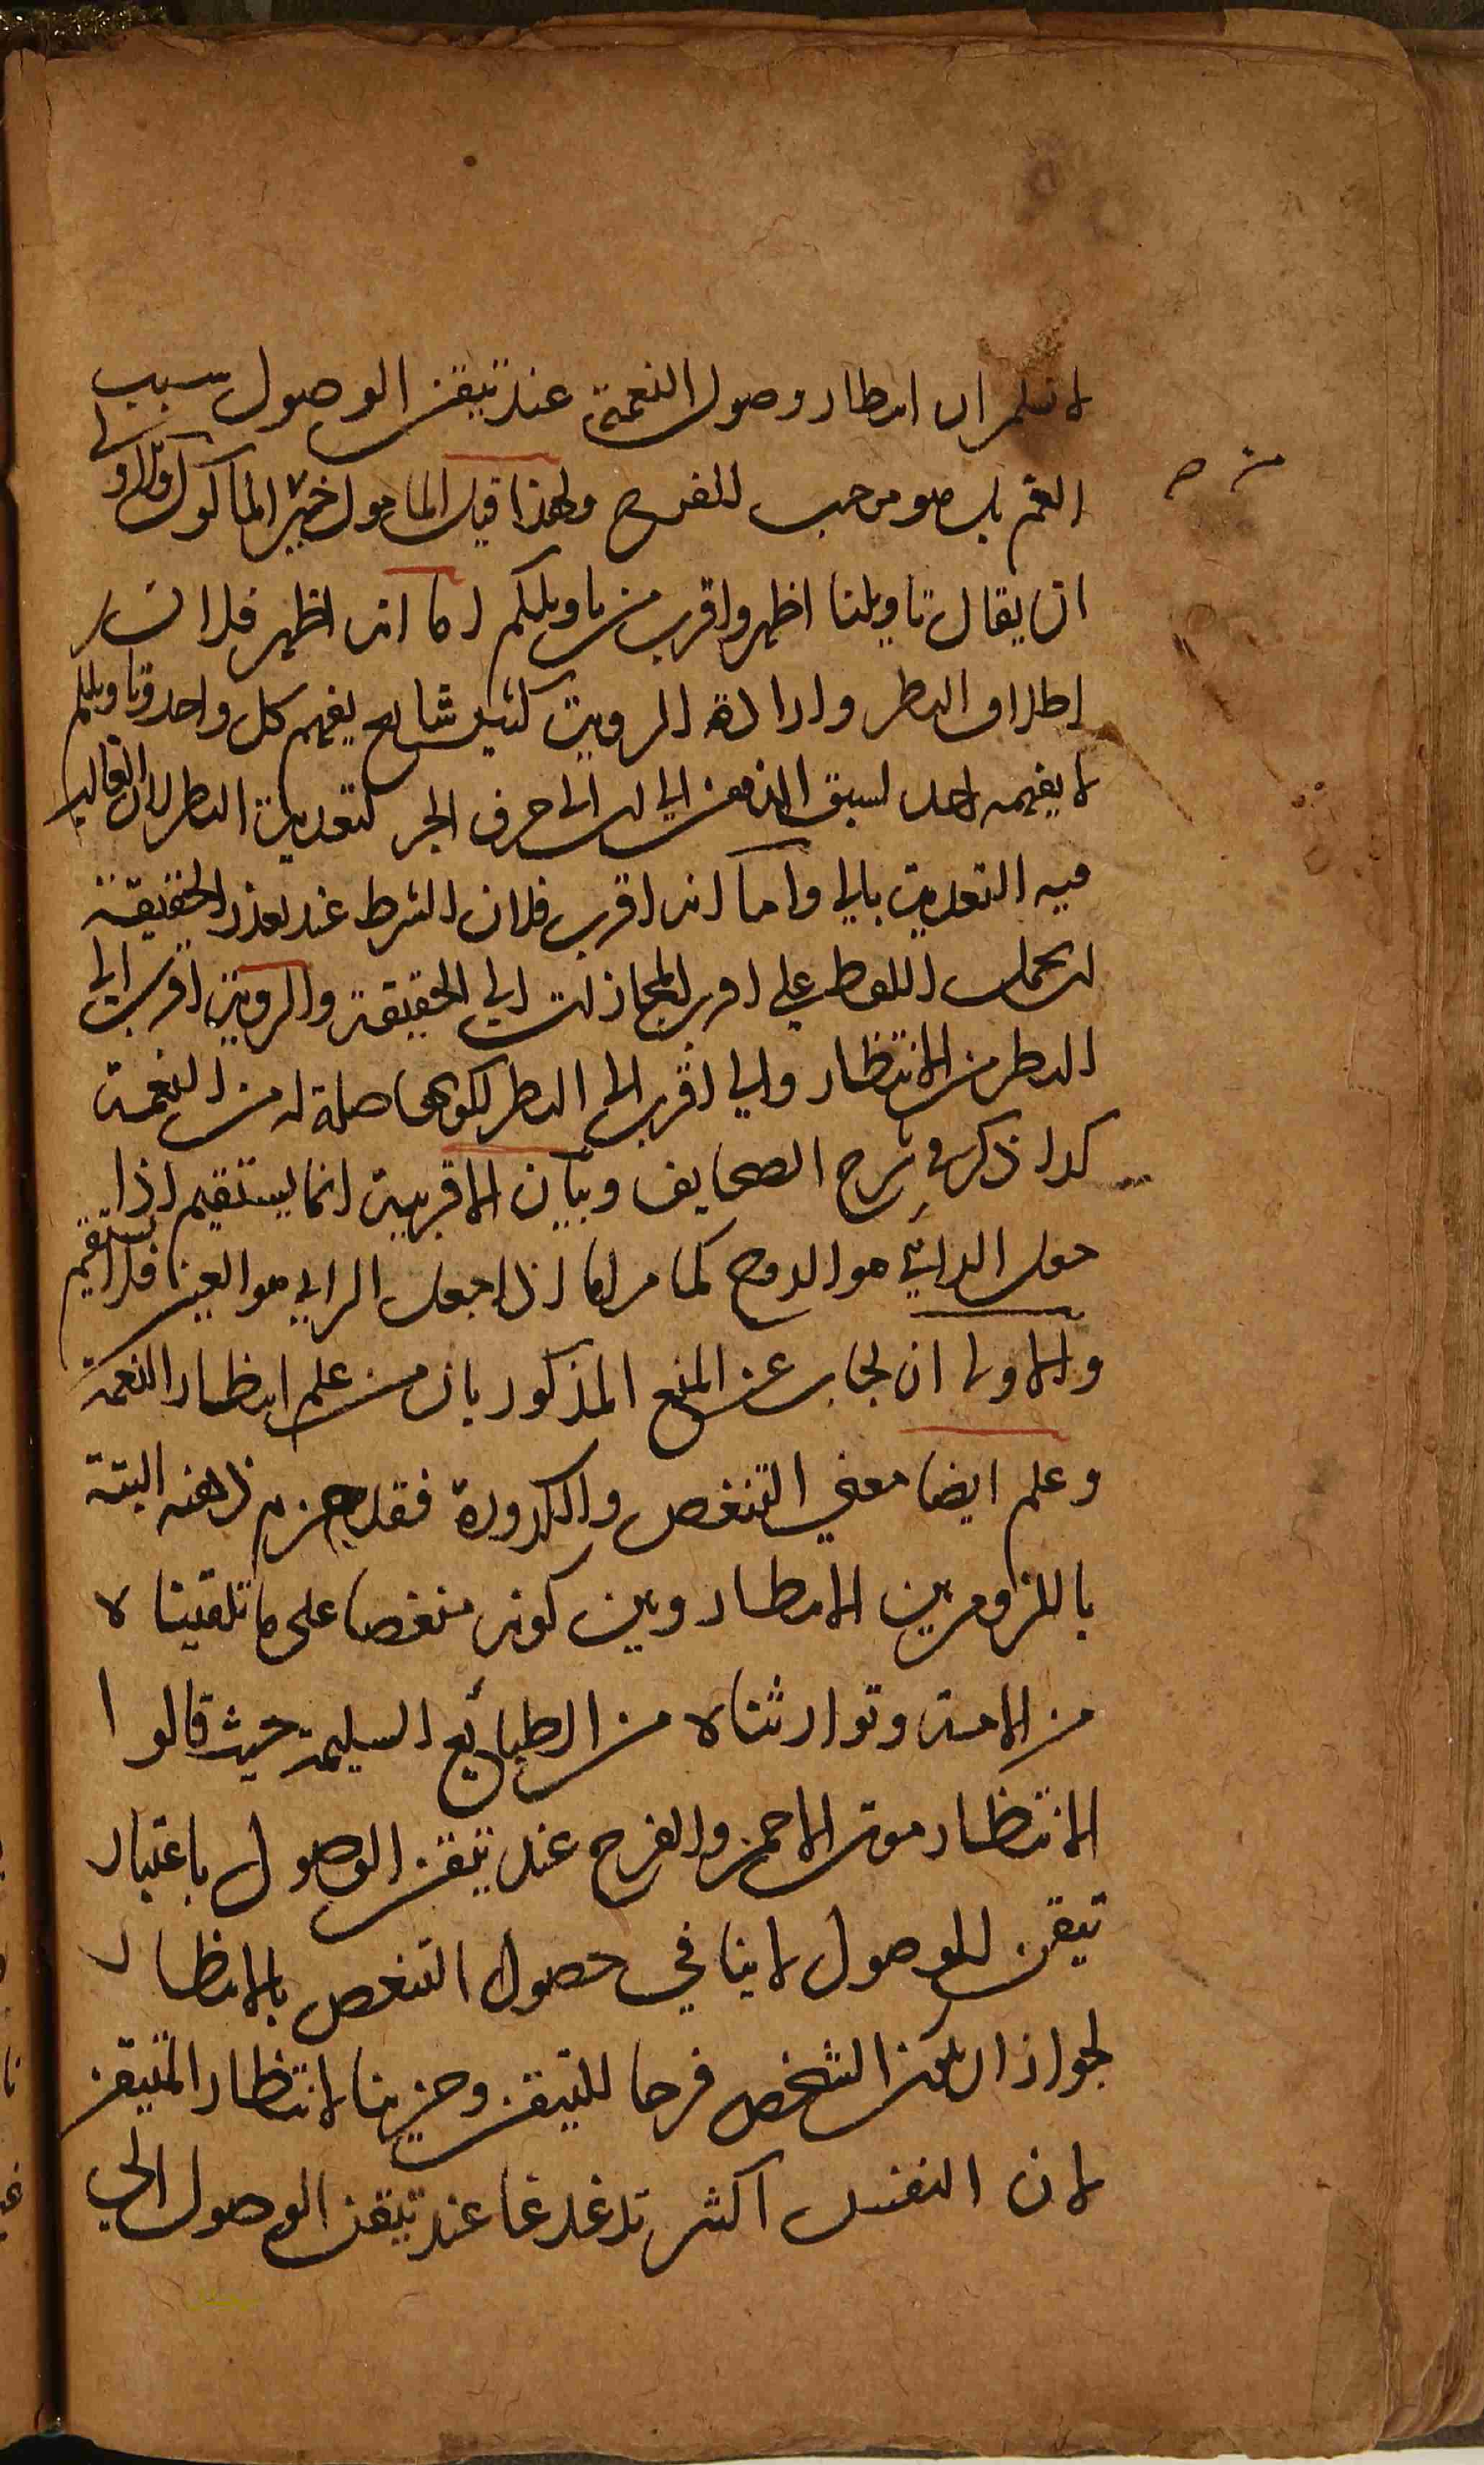 لا نسلم ان انتظار وصول النعمة عند تيقن الوصول سبب
الغم بل هو موجب للفرح ولهذا قيل المامول خير الماكول والاولى
ان يقال تاويلنا اظهر واقرب من تاويلكم اما انه اظهر فلان
اطلاق النظر وارادة الروية كثير شايع يفهم كل واحد وتاويلكم
لا يفهمه احد لسبق الذهن الى ان الى حرف الجر لتعدية النظر لان الغالب
فيه التعدية بالى واما انه اقرب فلان الشرط عند تعذر الحقيقة
ان يحمل اللفظ على اقرب المجازات الى الحقيقة والروية اقرب الى
النظر من الانتظار والى اقرب الى النظر لكونها صلة له من النعمة
كذا ذكر في شرح الصحايف وبيان الاقربية انما يستقيم اذا
جعل الرائي هو الروح كما مر اما اذا جعل الرايي هو العين فلا يستقيم
والاولى ان يجاب عن المنع المذكور بان من علم انتظار النعمة
وعلم ايضا معنى التنغص والكدورة فقد جزم ذهنه البتة
باللزوم بين الانتظار وبين كونه منغصا على ما تلقيناه
من الامة وتوارثناه من الطبائع السليمة حيث قالوا
الانتظار موت الاحمر والفرح عند تيقن الوصول باعتبار
تيقن الوصول لا ينافي حصول التنغص بالانتظار
لجواز ان يكون الشخص فرحا للتيقن وحزينا لانتظار المتيقن
لان النفس اكثر تدغدغا عند تيقن الوصول الى